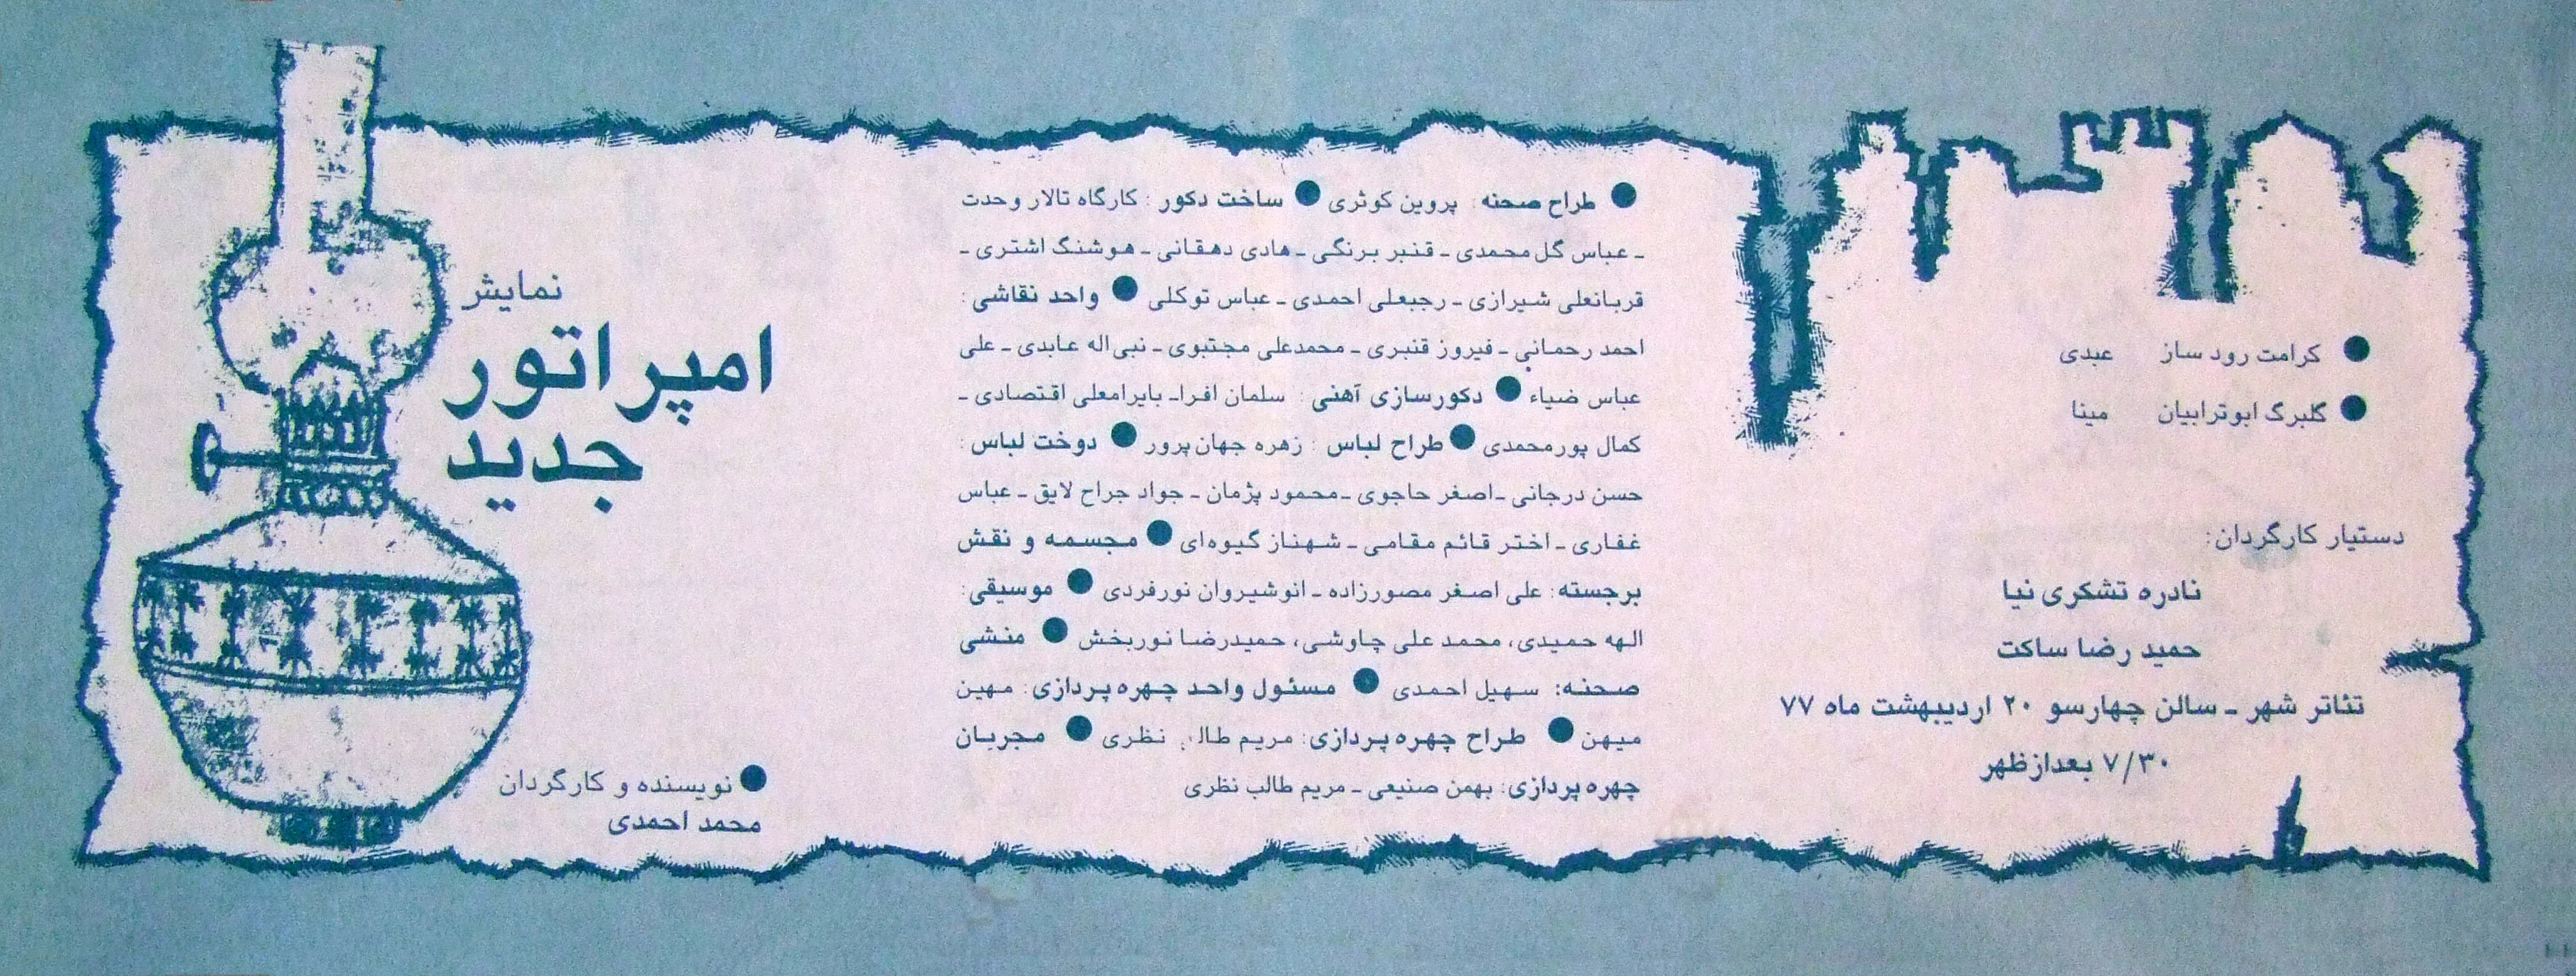 کرامت رود ساز عبدی
گلبرگ ابوترابیان مینا
دستیار کارگردان:
نادره تشکری نیا
حمید رضا ساکت
تئاتر شهر ـ سالن چهارسو ۲۰ اردیبهشت ماه ۷۷
۷/۳۰ بعدازظهر
● طراح صحنه : پروین کوثری ● ساخت دکور : کارگاه تالار وحدت
ـ عباس گل محمدی ـ قنبر برنگی ـ هادی دهقانی ـ هوشنگ اشتری ـ
قربانعلی شیرازی ـ رجبعلی احمدی ـ عباس توکلی ● واحد نقاشی :
احمد رحمانی ـ فیروز قنبری ـ محمدعلی مجتبوی ـ نبی‌اله عابدی ـ علی
عباس ضیاء ● دکورسازی آهنی : سلمان افرا ـ بایرامعلی اقتصادی ـ
کمال پورمحمدی ● طراح لباس : زهره جهان‌پرور ● دوخت لباس :
حسن درجانی ـ اصغر حاجوی ـ محمود پژمان ـ جواد جراح لایق ـ عباس
غفاری ـ اختر قائم مقامی ـ شهناز گیوه‌ای ● مجسمه و نقش
برجسته: علی اصغر مصورزاده ـ انوشیروان نورفردی ● موسیقی:
الهه حمیدی، محمد علی چاوشی، حمیدرضا نوربخش ● منشی
صحنه: سهیل احمدی ● مسئول واحد چهره‌پردازی: مهین
میهن ● طراح چهره‌پردازی: مریم طالب نظری ● مجریان
چهره‌پردازی: بهمن صنیعی ـ مریم طالب نظری
نمایش
امپراتور
جدید
● نویسنده و کارگردان
محمد احمدی